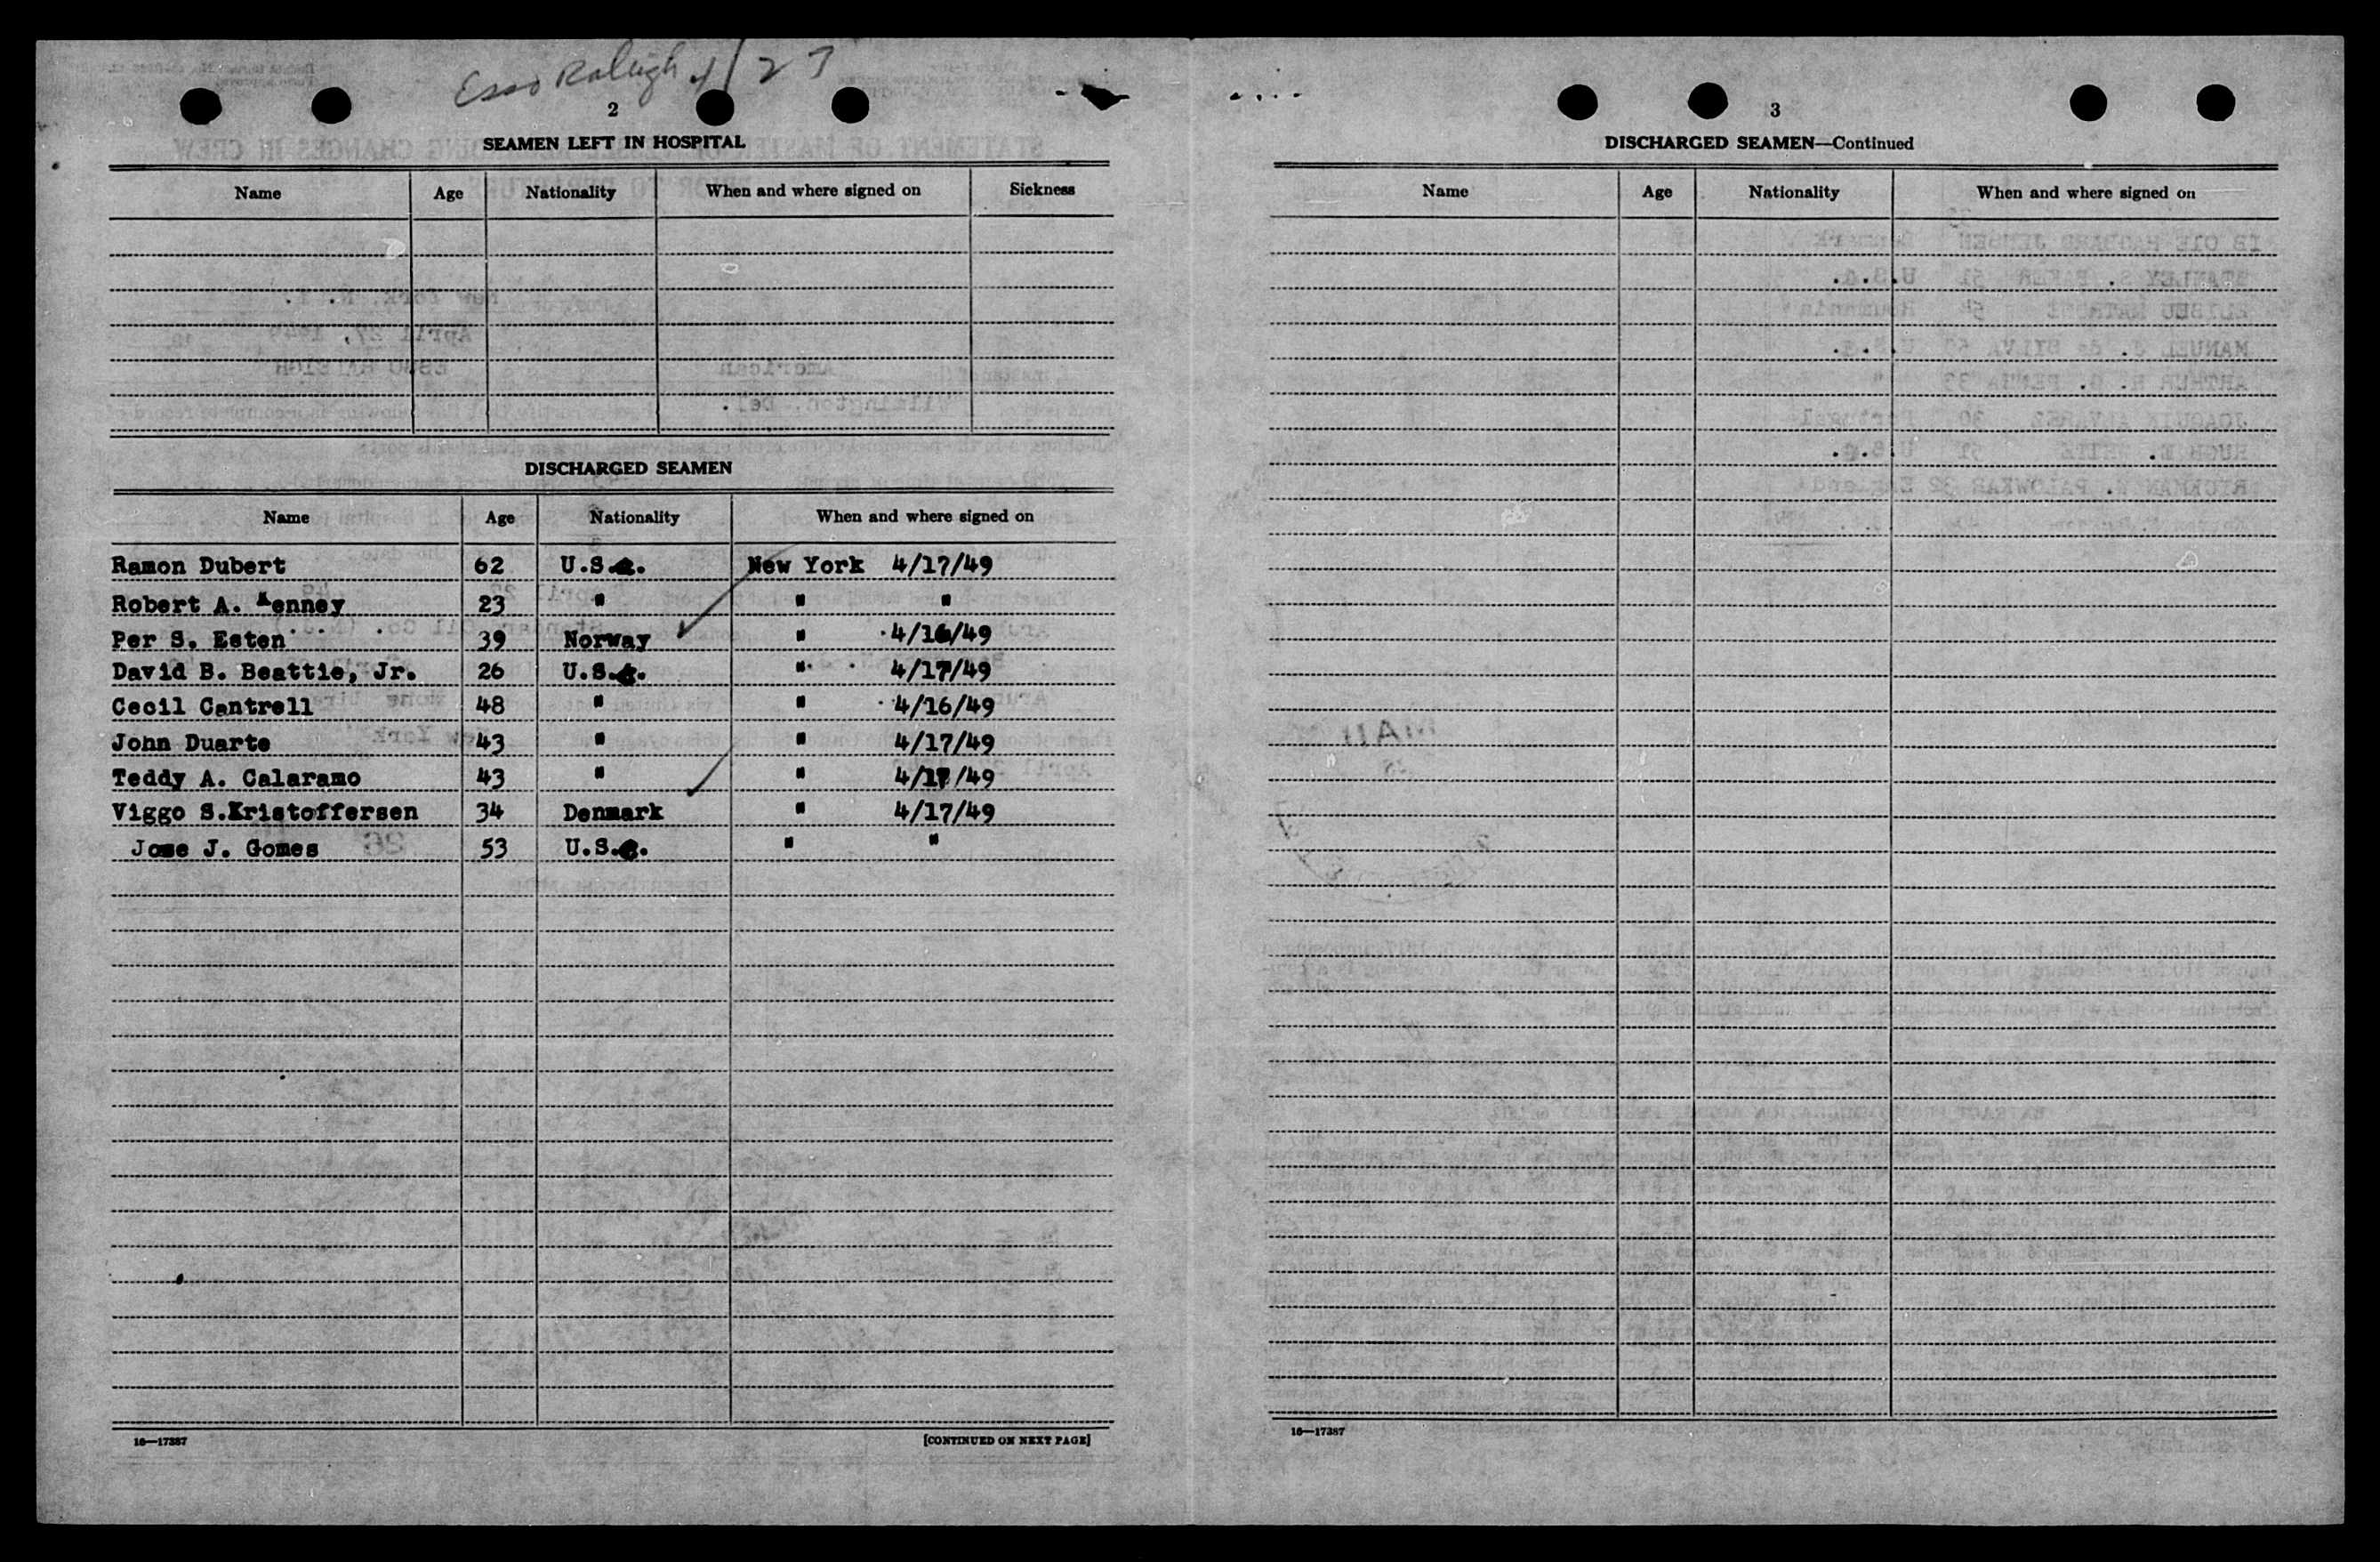 Esso Raleigh 4/27
2
SEAMEN LEFT IN HOSPITAL
Name Age Nationality When and where signed on Sickness
DISCHARGED SEAMEN
Name Age Nationality When and where signed on
Ramon Dubert 62 U.S.a. New York 4/17/49
Robert A. Kenney 23 " " "
Per S. Esten 39 Norway " 4/16/49
David B. Beattie, Jr. 26 U.S.a. " 4/17/49
Cecil Cantrell 48 " " 4/16/49
John Duarte 43 " " 4/17/49
Teddy A. Calaramo 43 " " 4/17/49
Viggo S.Kristoffersen 34 Denmark " 4/17/49
Jose J. Gomes 53 U.S.a. " "
16—17387 [CONTINUED ON NEXT PAGE]
3
DISCHARGED SEAMEN—Continued
Name Age Nationality When and where signed on
16—17387